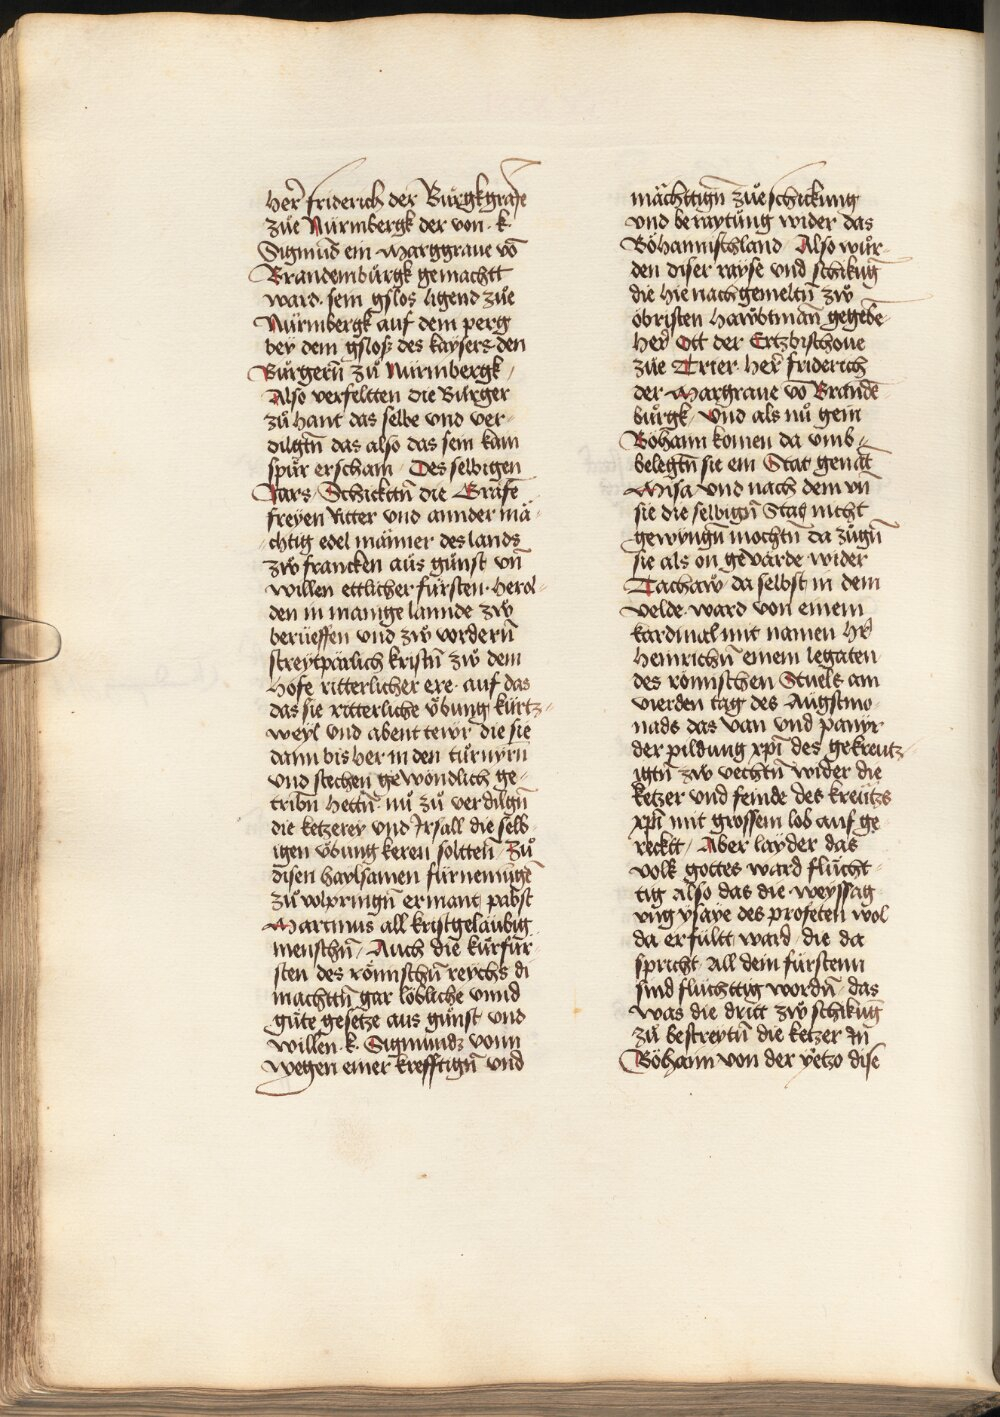 Her̄ friderich der Bůrgkgrafe
zůe Nürmbergk der von · k·
Sigmūd ein Marggraue vō
Brandembürgk gemachtt
ward · sein gslos ligend zůe
Nürmbergk auf dem perg
bey dem gsloß des kaysers den
Bürgerñ zů Nürmbergk /
Also verfeltten die Bůrger
zů hant das selbe vnd ver-
dilgtn̄ das also das sein kain
spůr erschain / Des selbigen
Jars / Schicktn̄ die Grafē
freyen Ritter vnd annder mä-
chtig edel männer des lands
zẘ francken aüs günst vn̄
willen ettlicher fürsten · Herol-
den in manige lannde zẘ
berüeffen vnd zẘ vordern̄
streytpärlich kristn̄ zẘ dem
Hofe ritterlicher ere · auf das
das sie ritterliche v̊bung kürtz-
weyl vnd abenttewr die sie
dann bis her in den tůrnyrn
vnd stechen gewöndlich ge-
tribn̄ hettn̄ nů zů verdilgn̄
die ketzerey vnd Jrsall die selb-
igen v̊bung keren soltten / Zů
disen haylsamen fürnemūgē
zů volpringn̄ ermant pabst
Martinus all kristgeläubig
menschn̄ / Auch die kůrfür-
sten des römschn̄ reychs di
machttn̄ gar löbliche vnnd
gůte gesetze aus günst vnd
willen · k· Sigmundz vonn
wegen einer krefftign̄ vnd
mächttign̄ zůeschickung
vnd beraytüng wider das
Böhannischland / Also wůr-
den diser rayse vnd schikūg
die hienachgemeltn̄ zẘ
öbristen Hawbtman̄ gegebē
Her̄ Ott der Ertzbischoue
züe Trier · Her̄ friderich
der Margraue vō Brandē-
bůrgk / Vnd als nů gein
Böhann komen da vmb-
belegtn̄ sie ein Stat genāt
Misa / vnd nach dem vn̄
sie die selbign̄ Stat nicht
gewyngn̄ mochtn̄ da zůgn̄
sie als on gevärde wider
Tachaw / da selbst in dem
velde · ward von einem
kardinal mit namen Hr̄
Heinrichn̄ einem legaten
des römischen Stuels am
vierden tag des Augstmo-
nads das van vnd panyr
der pildung xp̄i des gekreutz-
igtn̄ zẘ vechtn̄ wider die
ketzer vnd feinde des kreütz
xp̄i mit grossem lob auf ge-
recktt / Aber layder das
volk gottes ward flücht-
tig Also das die weyssag
vng ysaye des profeten wol
da erfültt ward / die da
spricht / All dein fürstenn
sind flüchttig wordn̄ / das
was die dritt zẘ schikūg
zů bestreytn̄ die ketzer Jn̄
Böhann von der yetzo dise